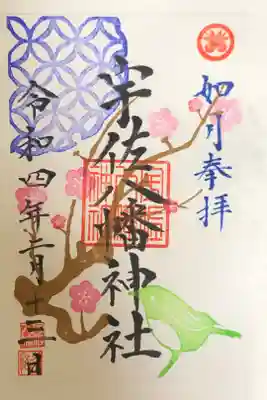 如月奉拝
宇佐八幡神社
令和四年二月十三日